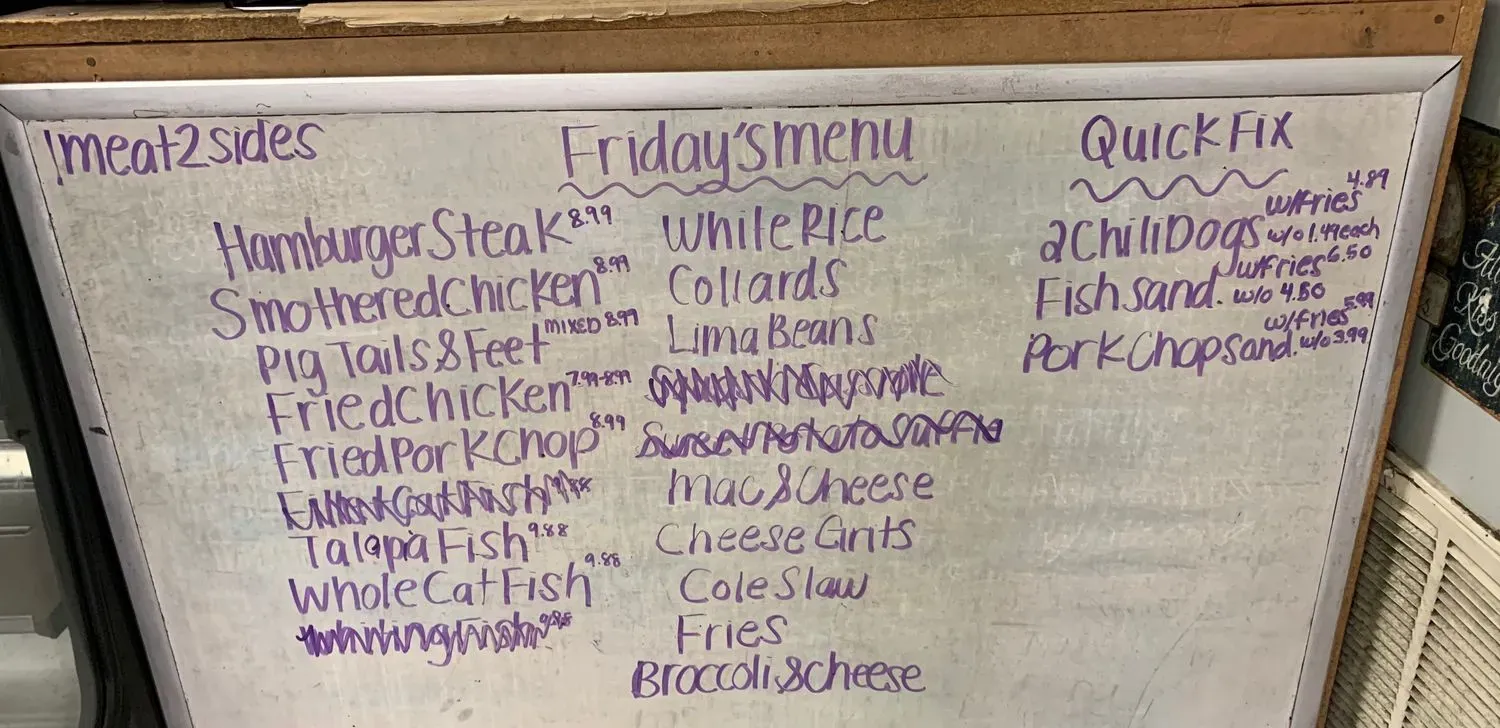 1meat2sides
Friday's menu
Hamburger Steak 8.99
Smothered Chicken 8.99
Pig Tails & Feet MIXED 8.99
Fried Chicken 7.99-8.99
Fried Pork Chop 8.99
Talapia Fish 9.88
Whole CatFish 9.88
White Rice
Collards
Lima Beans
Mac & Cheese
Cheese Grits
Cole Slaw
Fries
Broccoli & cheese
Quick Fix
2 Chili Dogs w/fries 4.89
w/o 1.49 each
Fish sand. w/fries 6.50
w/o 4.50
Pork Chop Sand. w/fries 5.99
w/o 3.99